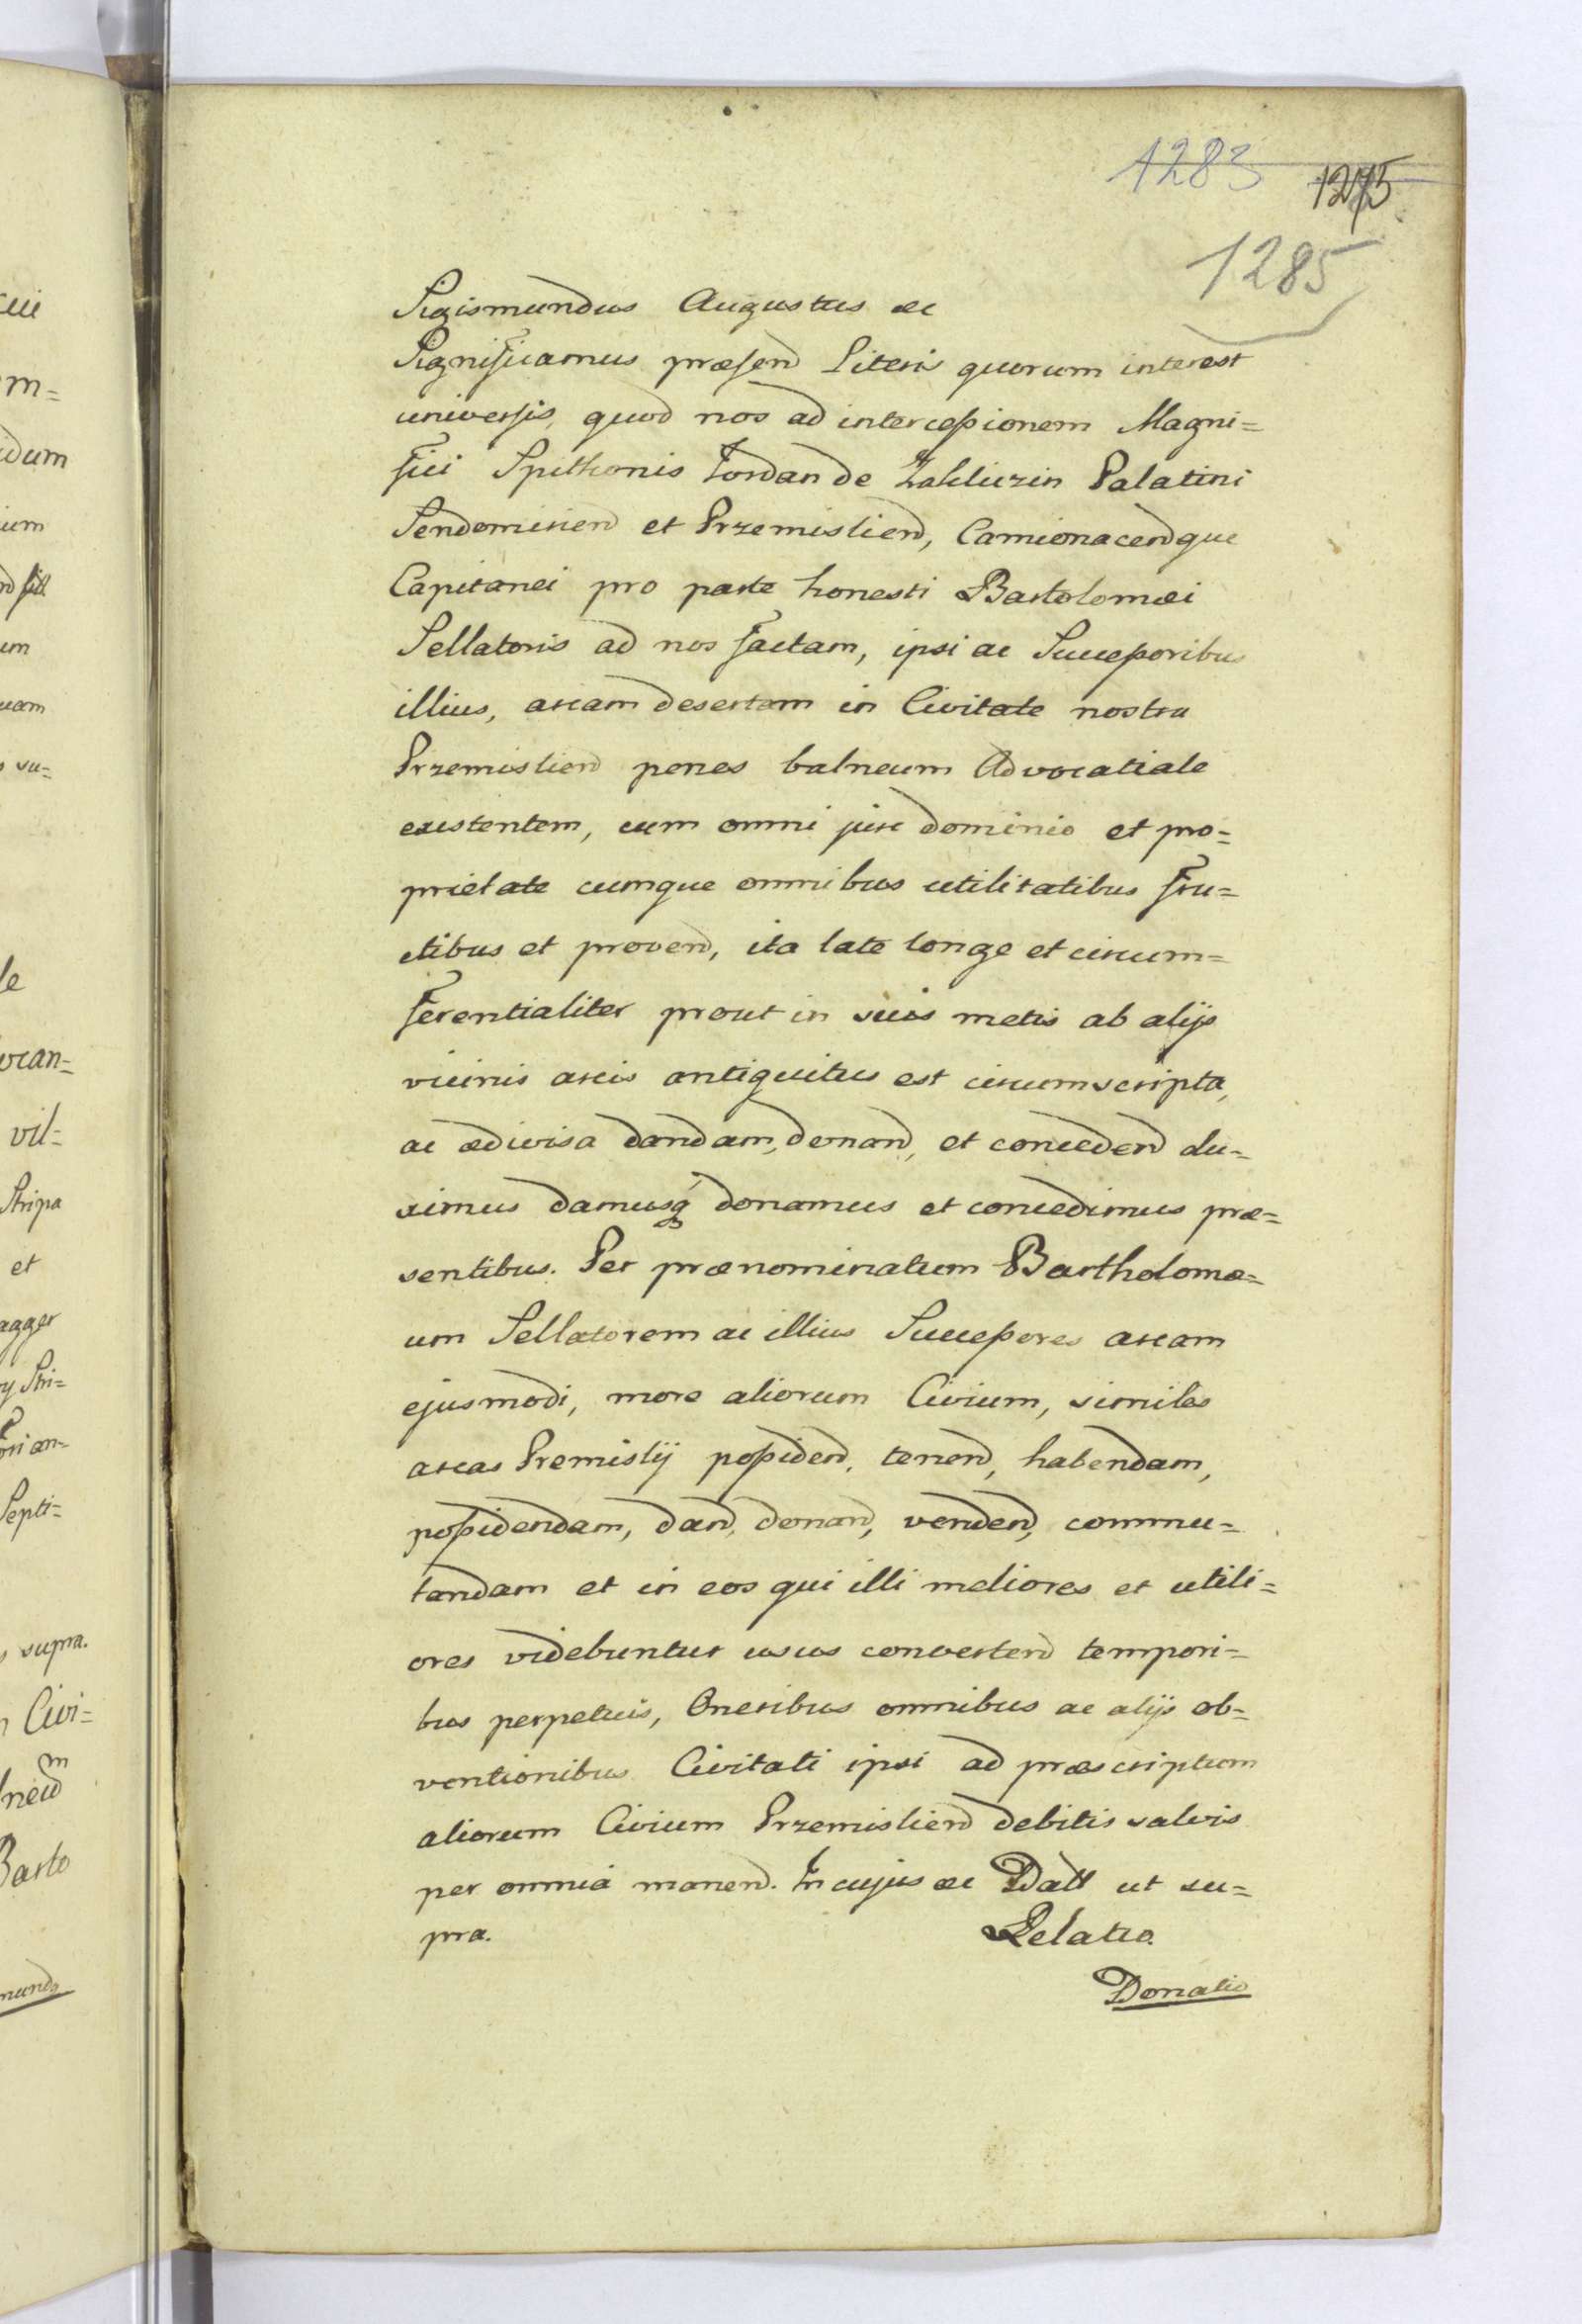 1283 1275
1285
Sigismundus Augustus ac
Significamus præsen Literis quorum interest
universis, quod nos ad intercessionem Magni=
fici Spithonis Jordan de Zakliczin Palatini
Sendomirien et Przemislien, Camionacenque
Capitanei pro parte honesti Bartolomæi
Sellatoris ad nos factam, ipsi ac Successoribus
illius, aream desertam in Civitate nostra
Przemislien penes balneum Advocatiale
existentem, cum omni jure dominio et pro=
prietate cumque omnibus utilitatibus fru=
ctibus et proven, ita late longe et circum=
ferentialiter prout in suis metis ab alijs
vicinis areis antiquitus est circumscripta,
ac ædivisa dandam, donan, et conceden du=
ximus damusq donamus et concedimus præ=
sentibus. Per prænominatum Bartholomæ=
um Sellatorem ac illius Successores aream
ejusmodi, more aliorum Civium, similes
areas Premislij possiden, tenen, habendam,
possidendam, dan, donan, venden, commu=
tandam et in eos qui illi meliores et utili=
ores videbuntur usus converten tempori=
bus perpetuis, Oneribus omnibus ac alijs ob=
ventionibus Civitati ipsi ad præscriptum
aliorum Civium Przemislien debitis salvis
per omnia manen. In cujus ac Datt ut su=
pra. Relatio.
Donatio